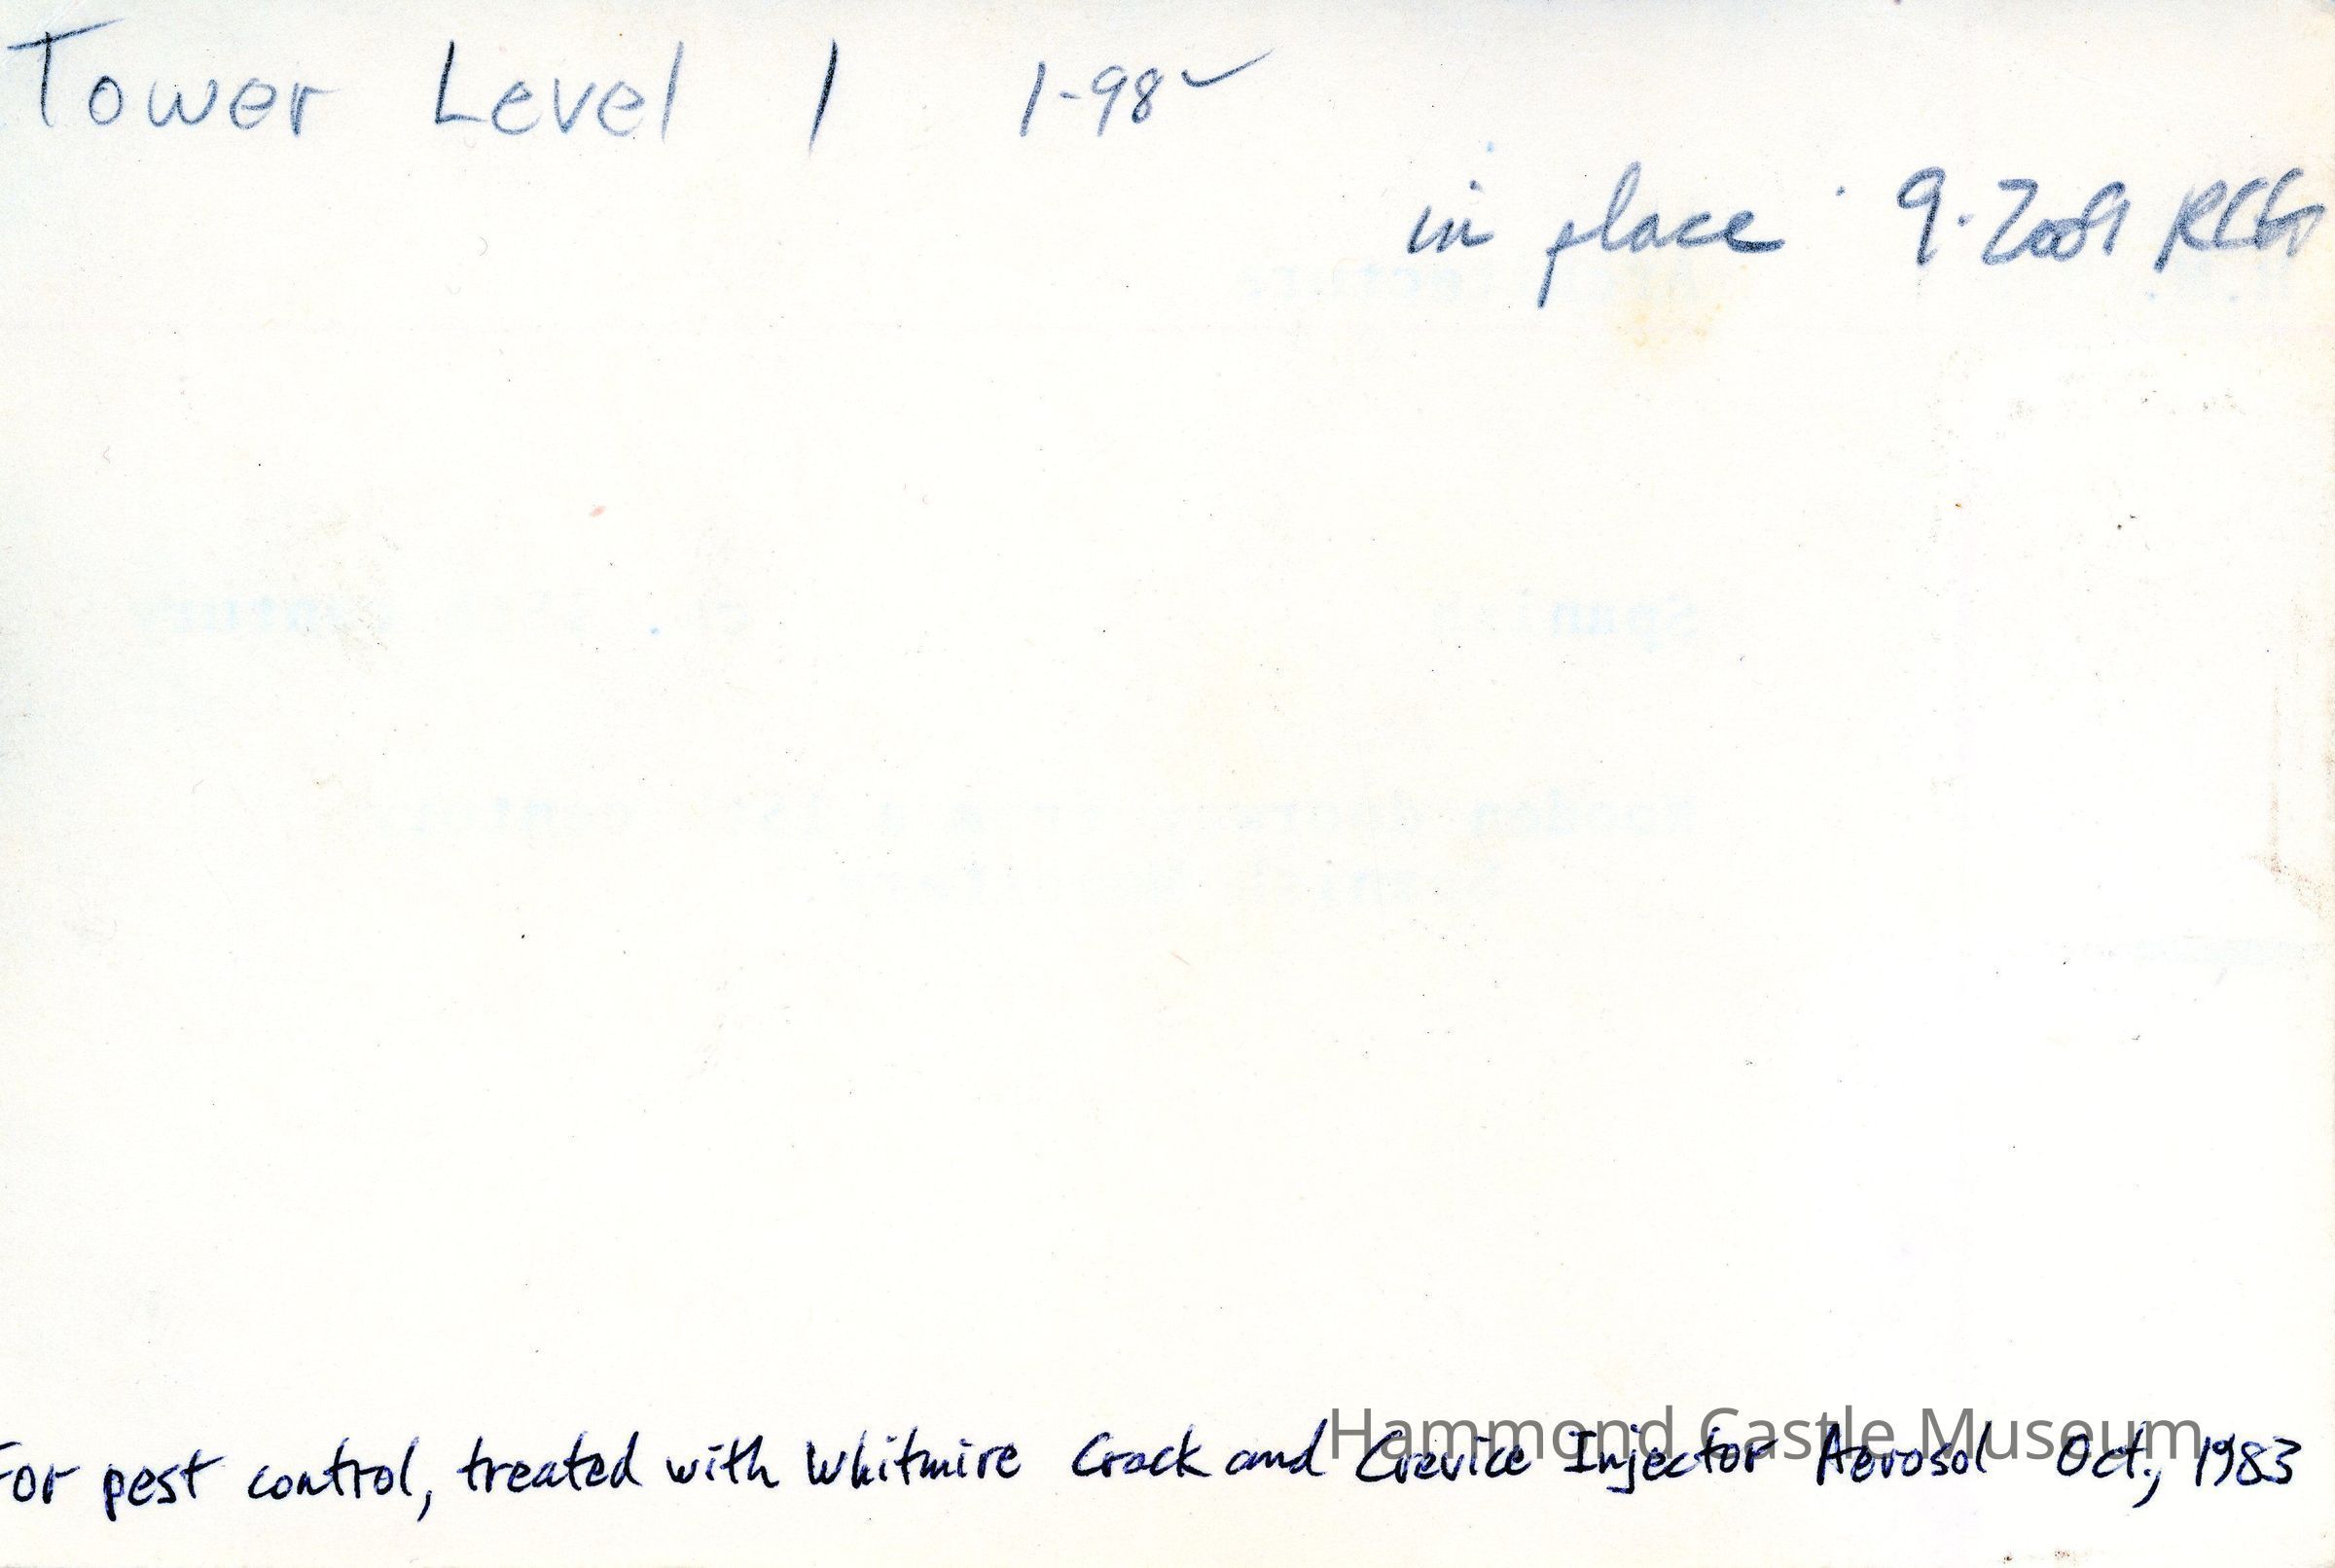 Tower Level 1 1-98 ✓
in place 9-2009 RCG
For pest control, treated with Whitmire Crack and Crevice Injector Aerosol Oct., 1983
Hammond Castle Museum